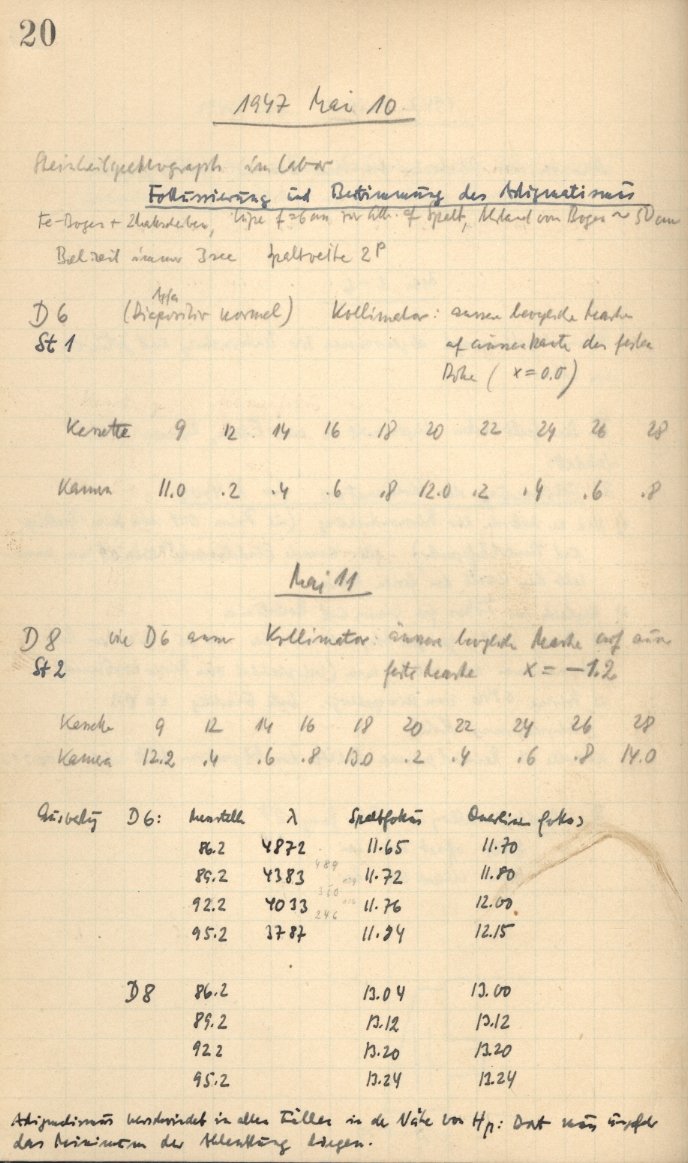 20
1947 Mai 10
im Labor
Fokussierung und Bestimmung des Astigmatismus
Fe-Bogen + f = 6 cm Spalt, Abstand von Bogen ~ 50 cm
immer 3 sec Spaltweite 2
D 6 (Diapositiv normal) Kollimator: äussere bewegliche Marke
St 1 auf Aussenkante der festen
(x = 0.0)
Kassette 9 12 14 16 18 20 22 24 26 28
Kamera 11.0 .2 .4 .6 .8 12.0 .2 .4 .6 .8
Mai 11
D 8 wie D6 ausser Kollimator: äussere bewegliche Marke auf
St 2 feste Marke x = -1.2
Kassette 9 12 14 16 18 20 22 24 26 28
Kamera 12.2 .4 .6 .8 13.0 .2 .4 .6 .8 14.0
D6: λ Spaltfokus Querlinienfokus
86.2 4872 11.65 11.70
489
89.2 4383 11.72 11.80
350
92.2 4033 11.76 12.00
246
95.2 3787 11.94 12.15
D8 86.2 13.04 13.00
89.2 13.12 13.12
92.2 13.20 13.20
95.2 13.24 13.24
Astigmatismus verschwindet in allen Fällen in der Nähe von Dort muss
das Minimum der Ablenkung liegen.